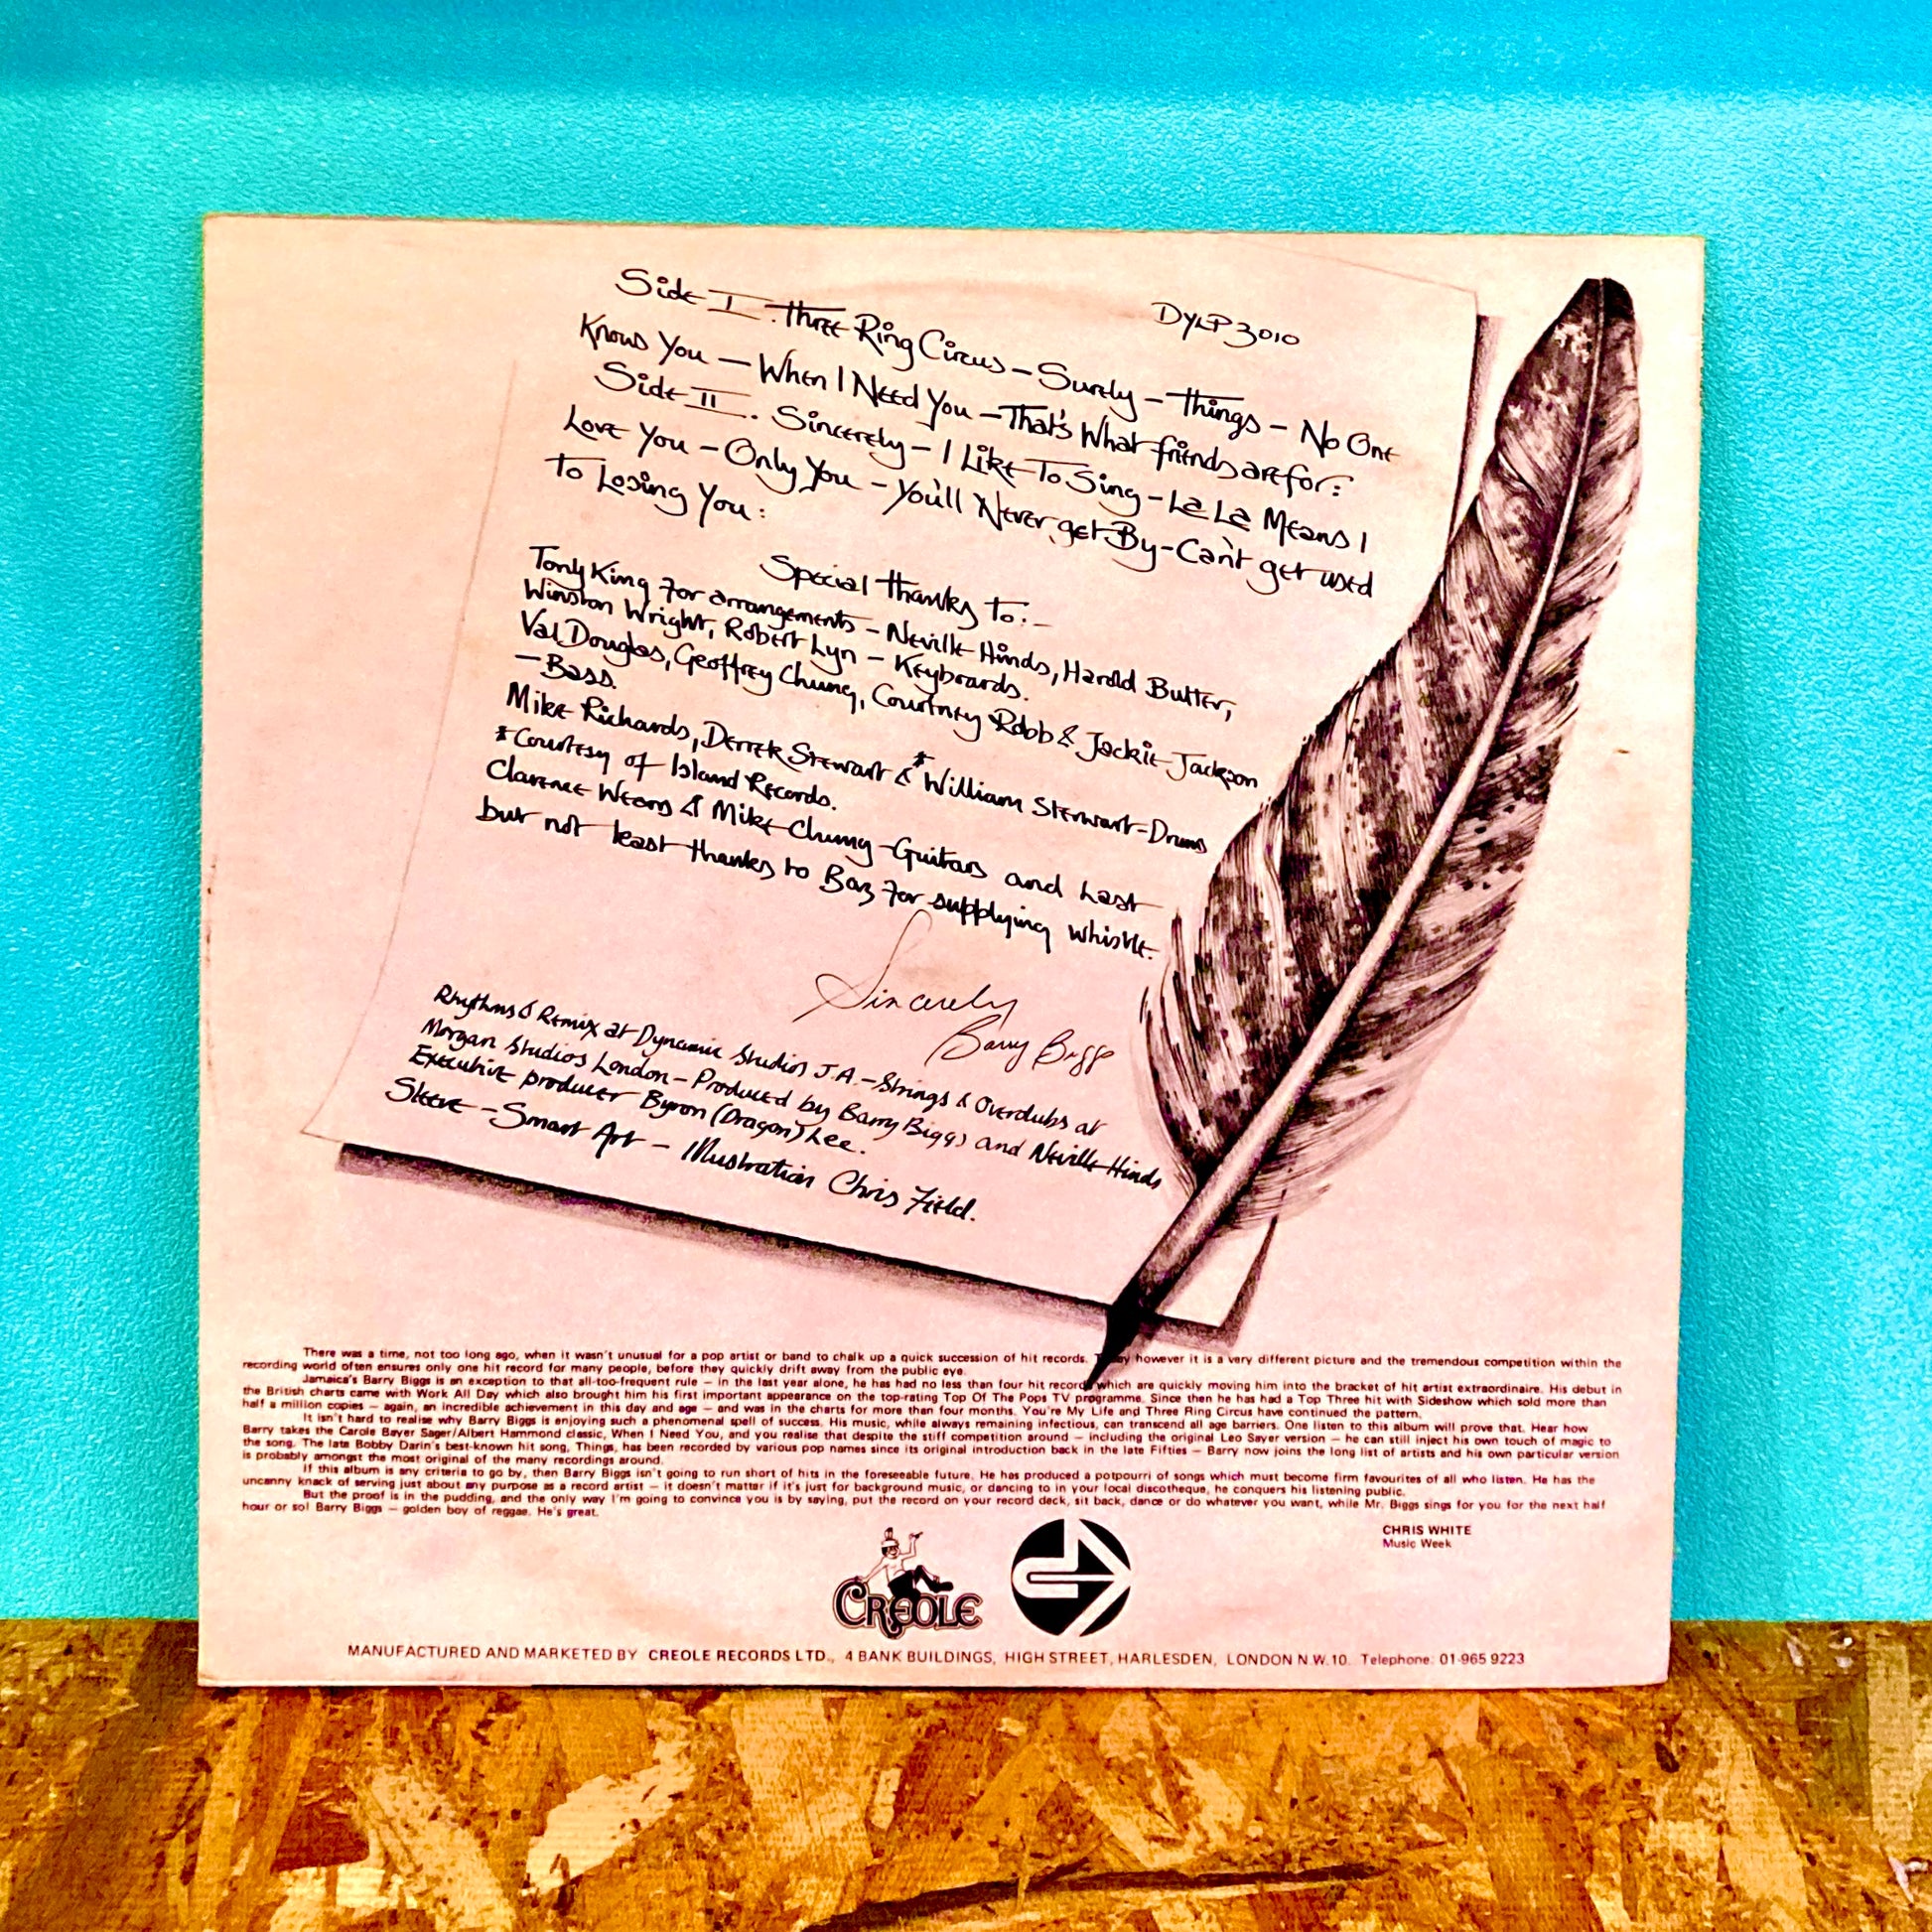 DYLP 3010
Side I. Three Ring Circus – Surely – Things – No One
Knows You – When I Need You – That's What friends are for:
Side II. Sincerely – I Like To Sing – La La Means I
Love You – Only You – You'll Never get By – Can't get used
To Losing You:
Special thanks to:–
Tony King for arrangements – Neville Hinds, Harold Butler,
Winston Wright, Robert Lyn – Keyboards.
Val Douglas, Geoffrey Chung, Courtney Robb & Jackie Jackson
– Bass.
Mike Richards, Derrek Stewart & *William Stewart – Drums
*Courtesy of Island Records.
Clarence Wears & Mike Chung – Guitars and Last
but not least thanks to Baz for supplying whistle.
Sincerely
Barry Biggs
Rhythms & Remix at Dynamic Studios J.A. – Strings & Overdubs at
Morgan Studios London – Produced by Barry Biggs and Neville Hinds
Executive producer Byron (Dragon) Lee.
Sleeve – Smart Art – Illustration Chris Field.
There was a time, not too long ago, when it wasn't unusual for a pop artist or band to chalk up a quick succession of hit records. however it is a very different picture and the tremendous competition within the
recording world often ensures only one hit record for many people, before they quickly drift away from the public eye.
Jamaica's Barry Biggs is an exception to that all-too-frequent rule – in the last year alone, he has had no less than four hit records which are quickly moving him into the bracket of hit artist extraordinaire. His debut in
the British charts came with Work All Day which also brought him his first important appearance on the top-rating Top Of The Pops TV programme. Since then he has had a Top Three hit with Sideshow which sold more than
half a million copies – again, an incredible achievement in this day and age – and was in the charts for more than four months. You're My Life and Three Ring Circus have continued the pattern.
It isn't hard to realise why Barry Biggs is enjoying such a phenomenal spell of success. His music, while always remaining infectious, can transcend all age barriers. One listen to this album will prove that. Hear how
Barry takes the Carole Bayer Sager/Albert Hammond classic, When I Need You, and you realise that despite the stiff competition around – including the original Leo Sayer version – he can still inject his own touch of magic to
the song. The late Bobby Darin's best-known hit song, Things, has been recorded by various pop names since its original introduction back in the late Fifties – Barry now joins the long list of artists and his own particular version
is probably amongst the most original of the many recordings around.
If this album is any criteria to go by, then Barry Biggs isn't going to run short of hits in the foreseeable future. He has produced a potpourri of songs which must become firm favourites of all who listen. He has the
uncanny knack of serving just about any purpose as a record artist – it doesn't matter if it's just for background music, or dancing to in your local discotheque, he conquers his listening public.
But the proof is in the pudding, and the only way I'm going to convince you is by saying, put the record on your record deck, sit back, dance or do whatever you want, while Mr. Biggs sings for you for the next half
hour or so! Barry Biggs – golden boy of reggae. He's great.
CHRIS WHITE
Music Week
CREOLE
MANUFACTURED AND MARKETED BY CREOLE RECORDS LTD., 4 BANK BUILDINGS, HIGH STREET, HARLESDEN, LONDON N.W.10. Telephone: 01-965 9223